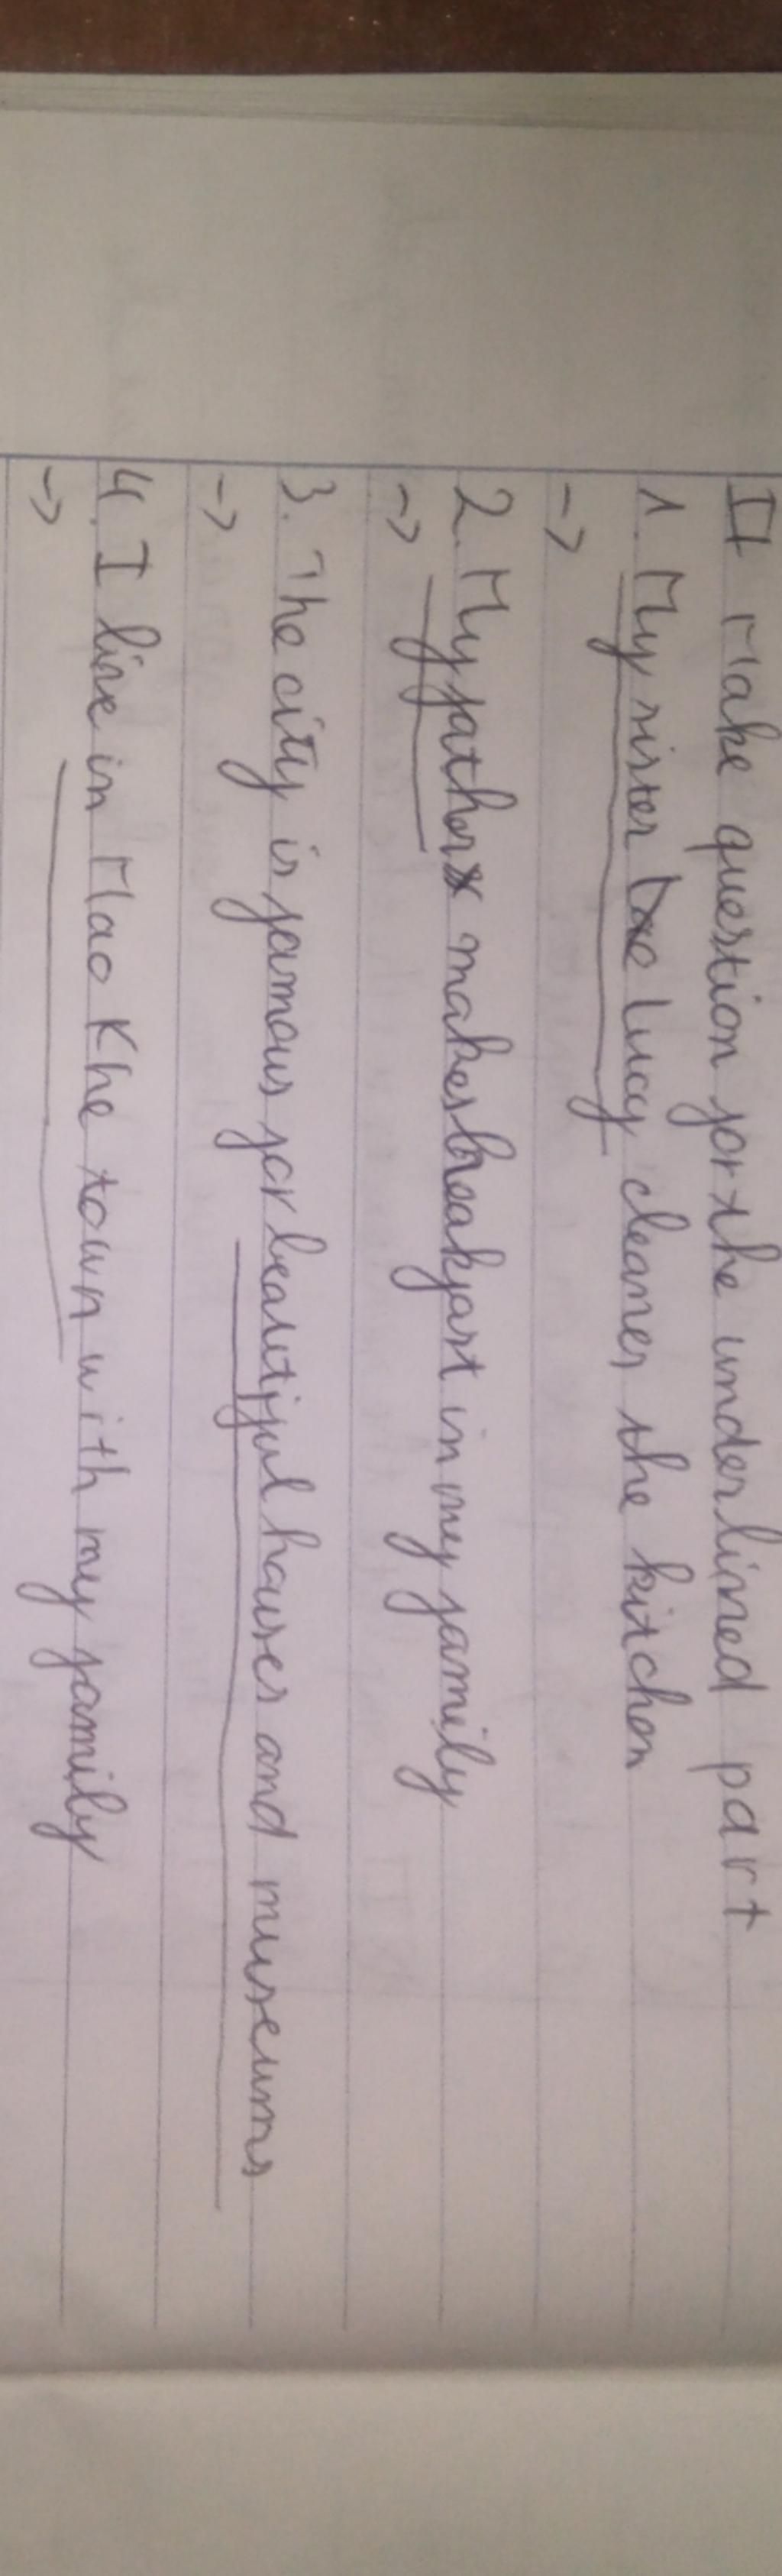 II Make question for the underlined part
1. My sister Lucy cleanes the kitchen
->
2. My father makes breakfast in my family
->
3. The city is famous for beautiful houses and museums
->
4. I live in Mao Khe town with my family
->